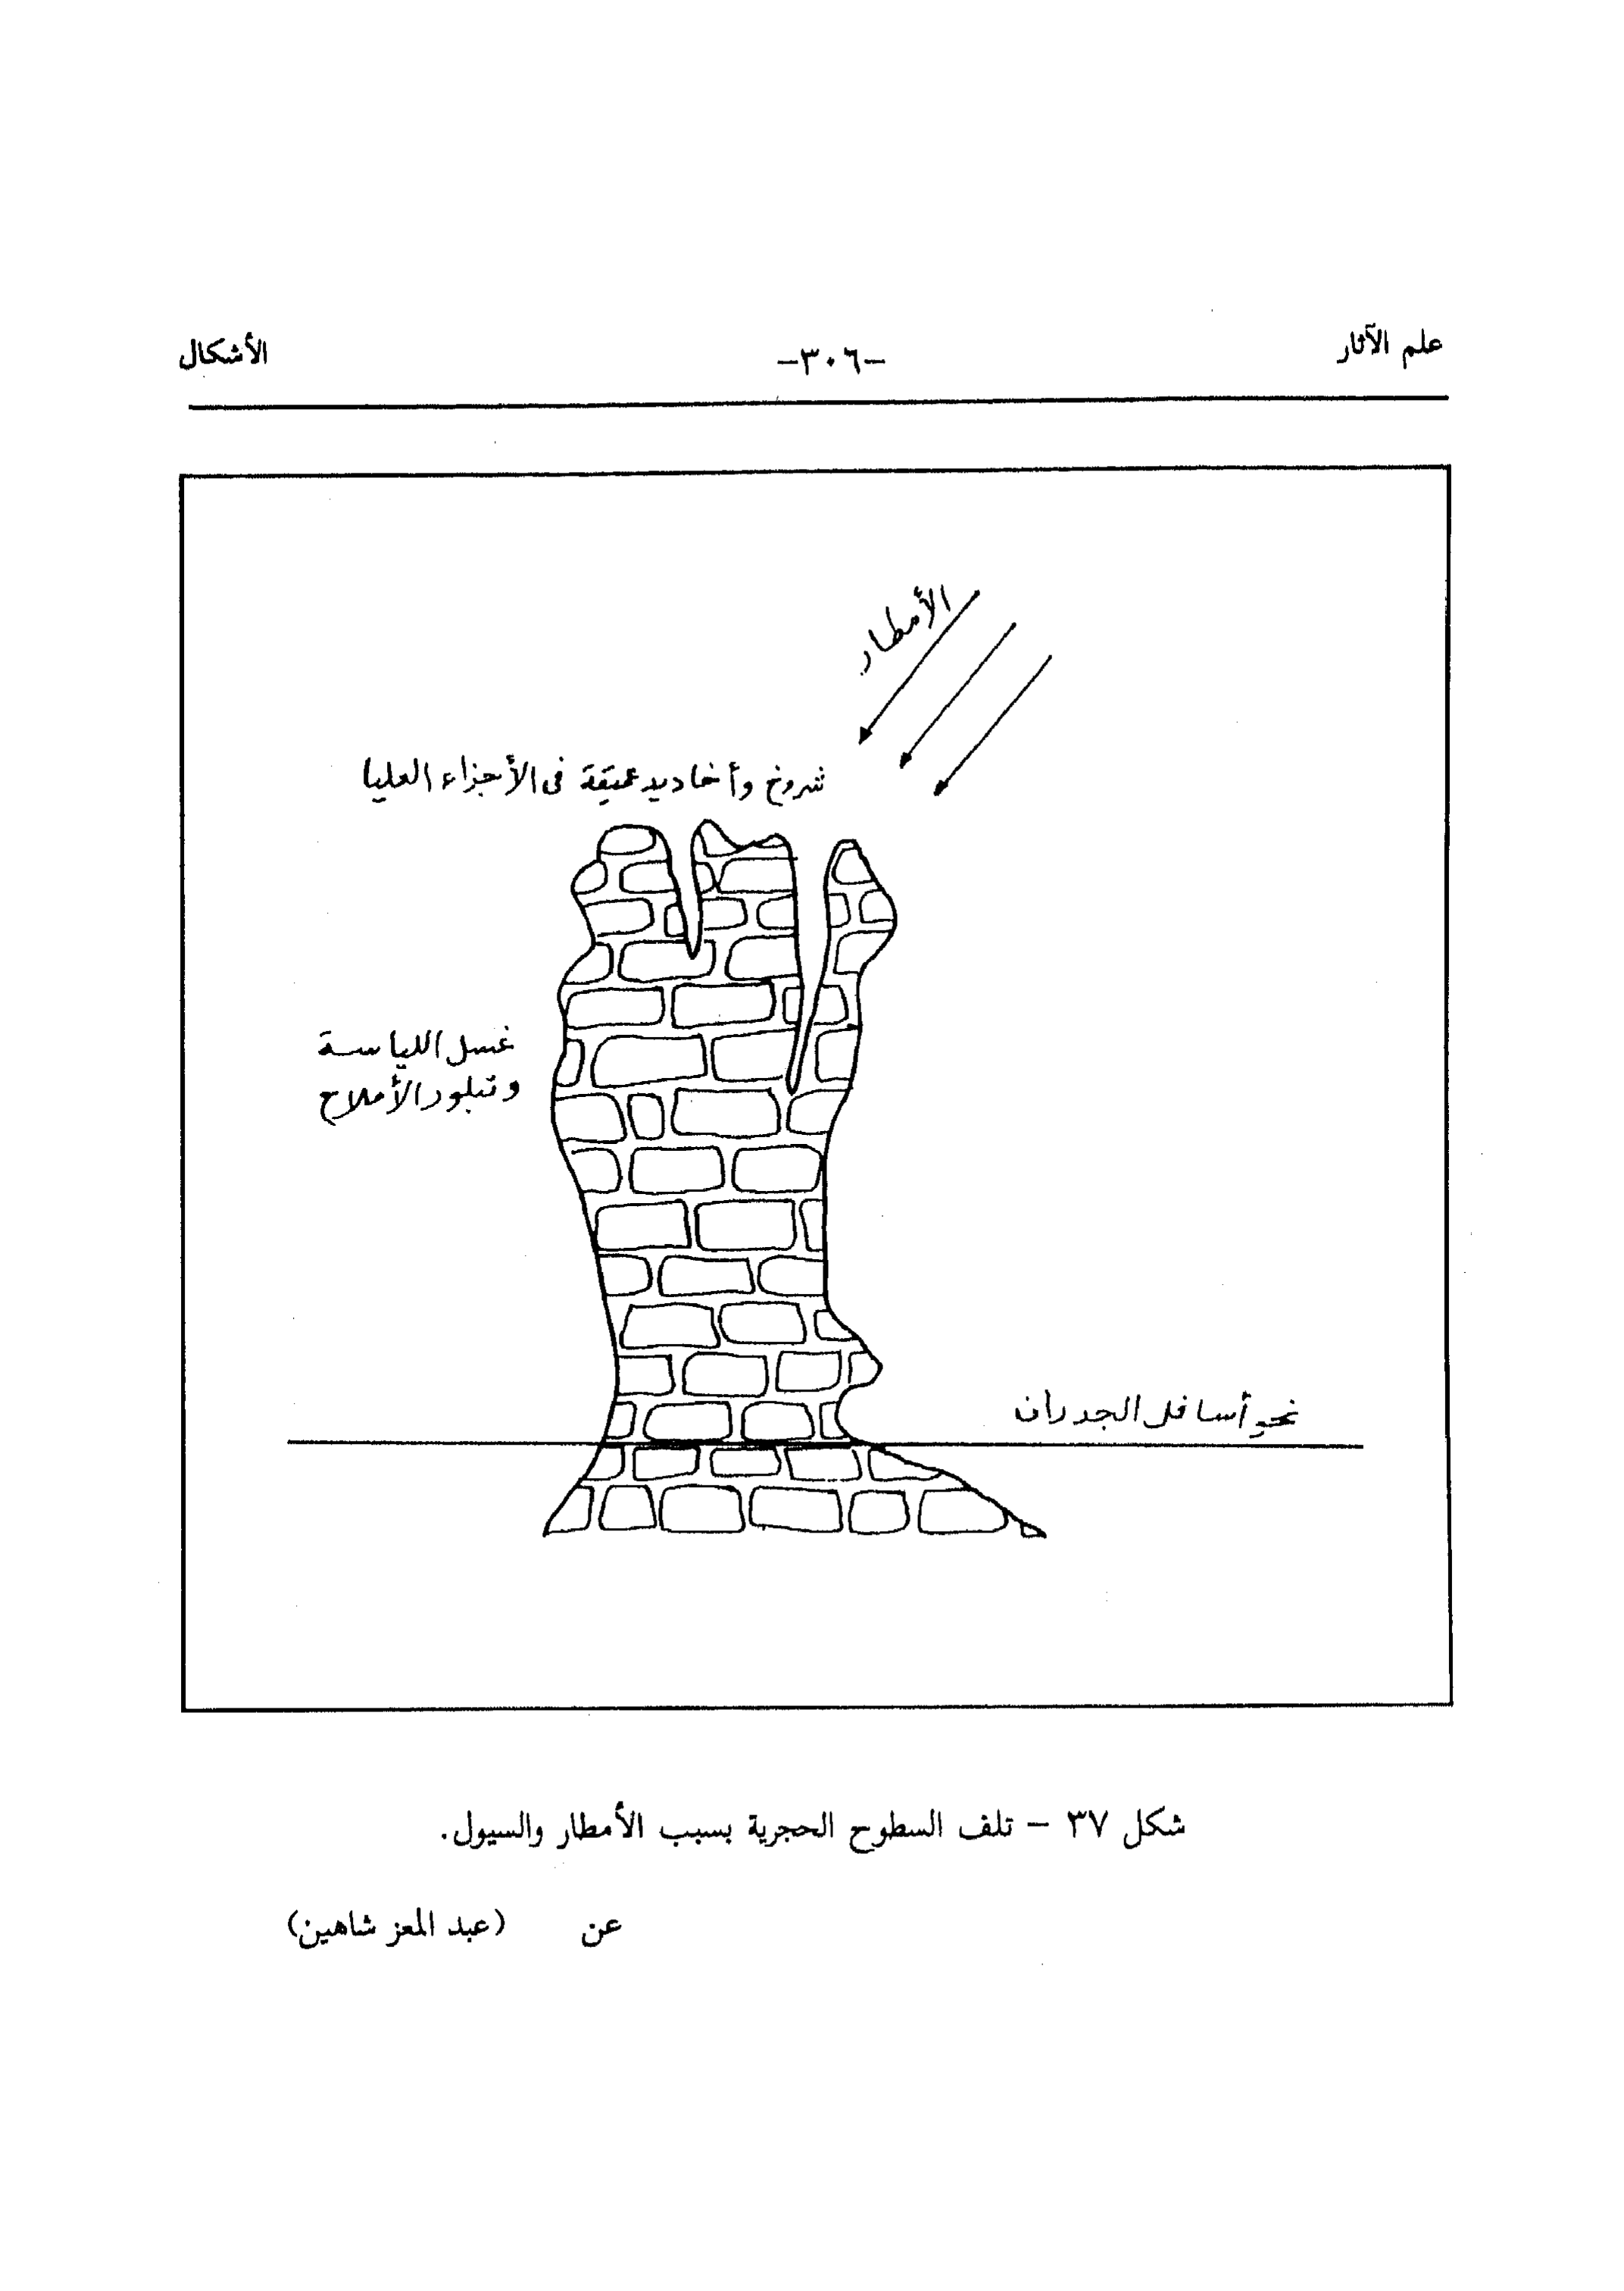 علم الآثار
-٣٠٦-
الأشكال
الأمطار
شروخ وأخاديد عميقة فى الأجزاء العليا
غسل اللياسة
وتبلور الأملاح
نحر أسافل الجدران
شكل ٣٧ – تلف السطوح الحجرية بسبب الأمطار والسيول.
عن (عبد المعز شاهين)